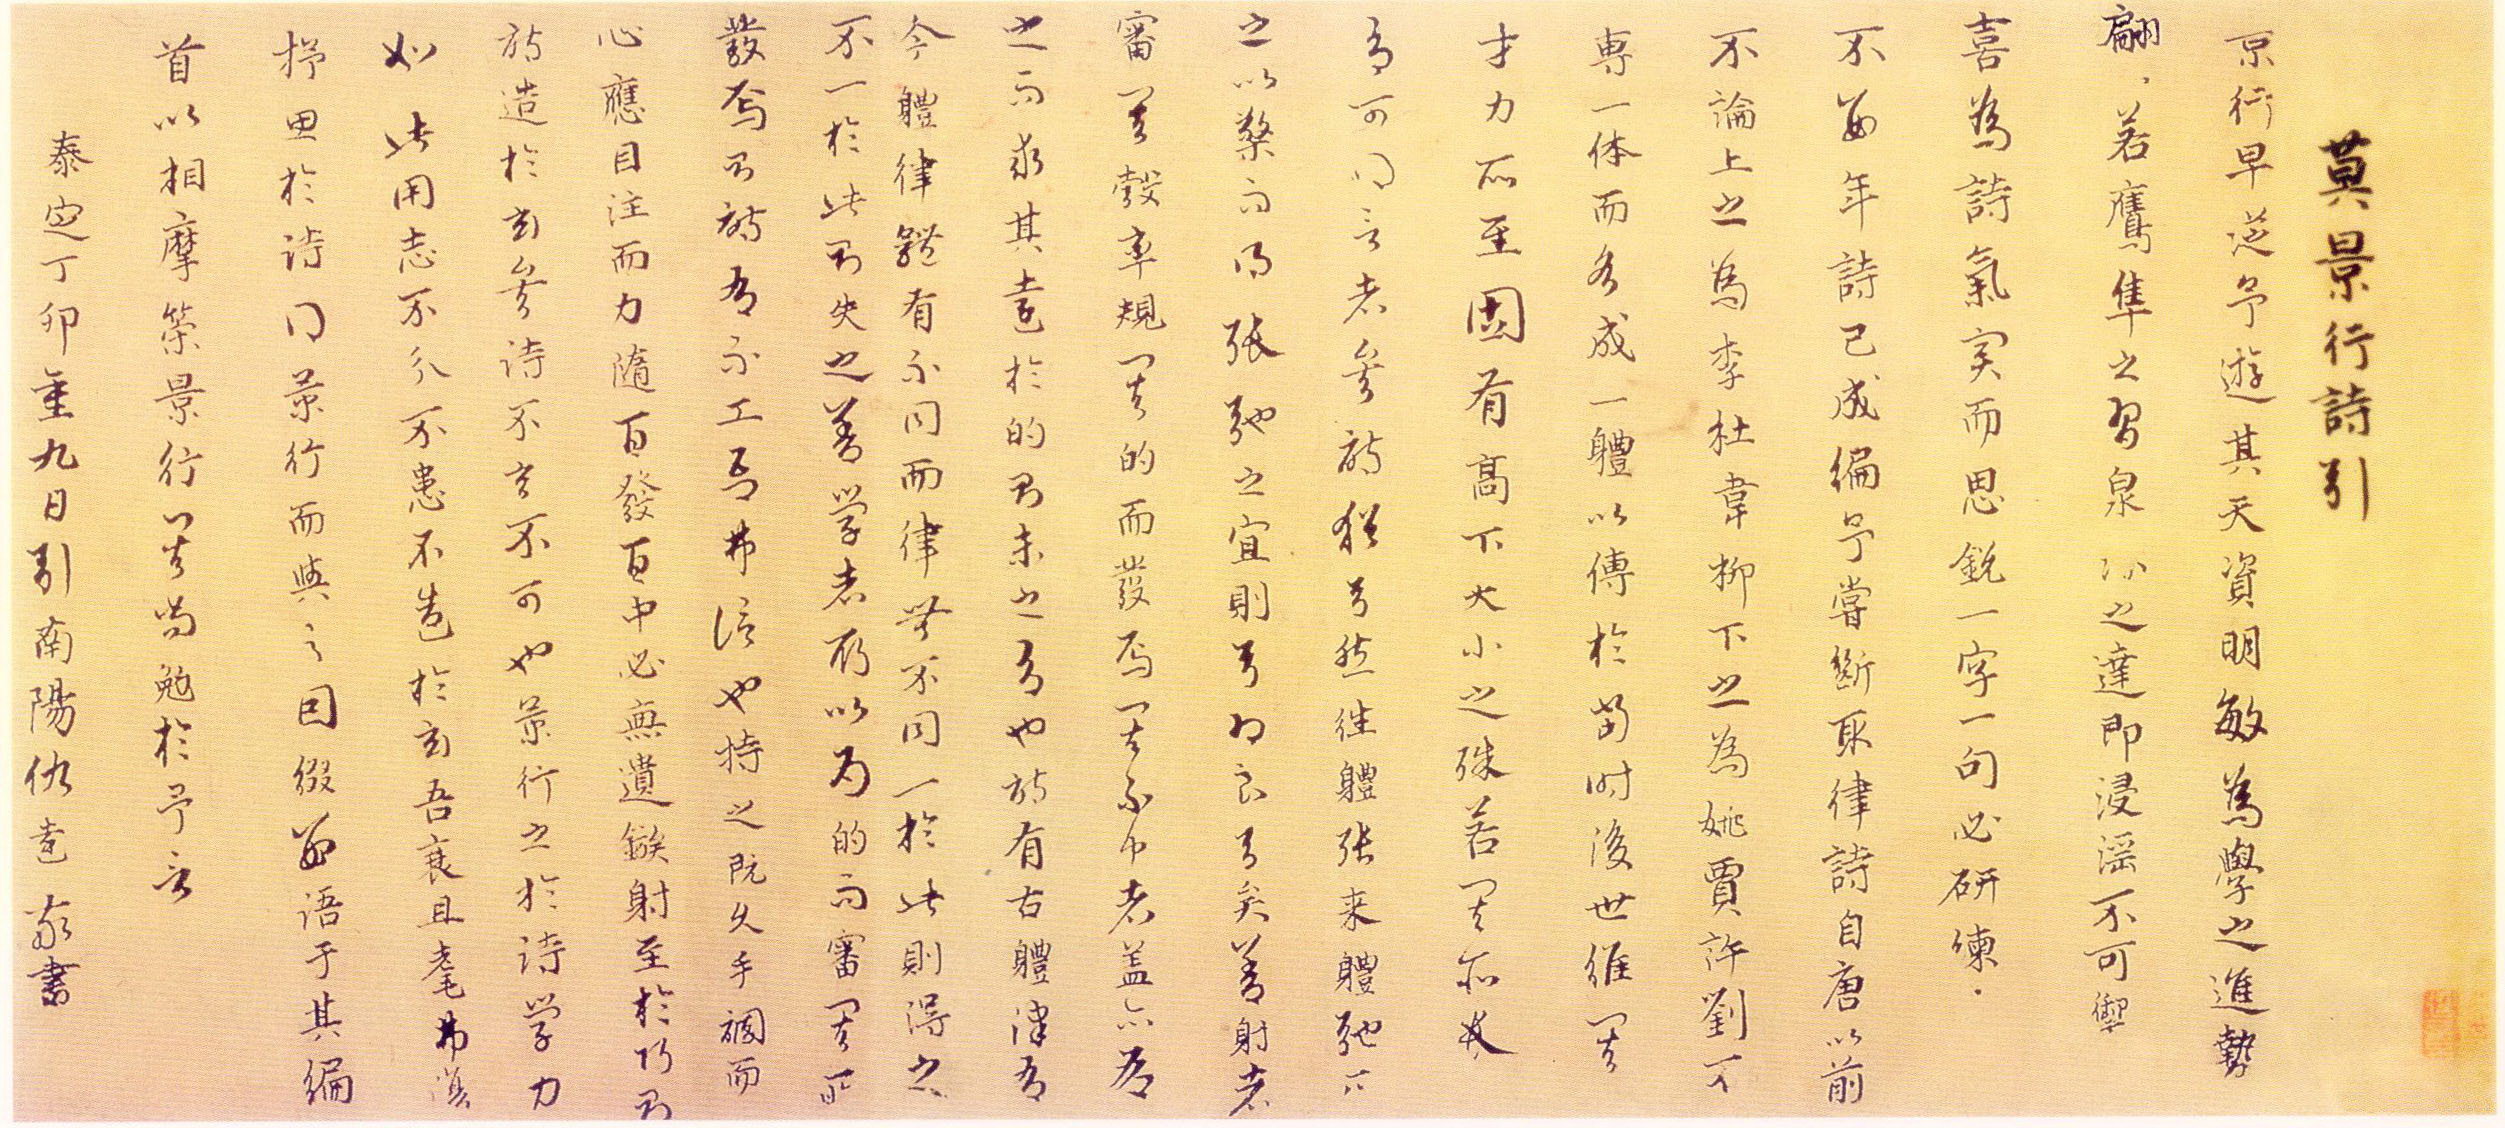 莫景行詩引
京行早從予遊其天資明敏為學之進勢
翩〻若鷹隼之習泉水之達即浸淫不可禦
喜為詩氣完而思銳一字一句必研練
不數年詩已成編予嘗斷取律詩自唐以前
不論上之為李杜韋柳下之為姚賈許劉不
專一体而各成一體以傳於當时後世雖其
才力所至固有高下大小之殊若其所
有可得言者矣詩猶弓然往體張来體弛
之以檠而得張弛之宜則弓為良弓矣善射者
審其彀率規其的而發焉其不中者盖亦為
之而求其遠於的則未之有也詩有古體律有
今體律體有不同而律無不同一於此則得之
不一於此則失之善学者所以為的而審其所
發焉則詩有不工焉弗信也持之既久手調而
心應目注而力隨百發百中必無遺鏃射至於巧則
詩造於玄矣詩不玄不可也景行之於詩学力
如此用志不分不患不造於玄吾衰且耄弗復
抒思於詩得景行而與言因綴數语于其編
首以相摩筞景行其尚勉於予言
泰定丁卯重九日引南陽仇遠敬書